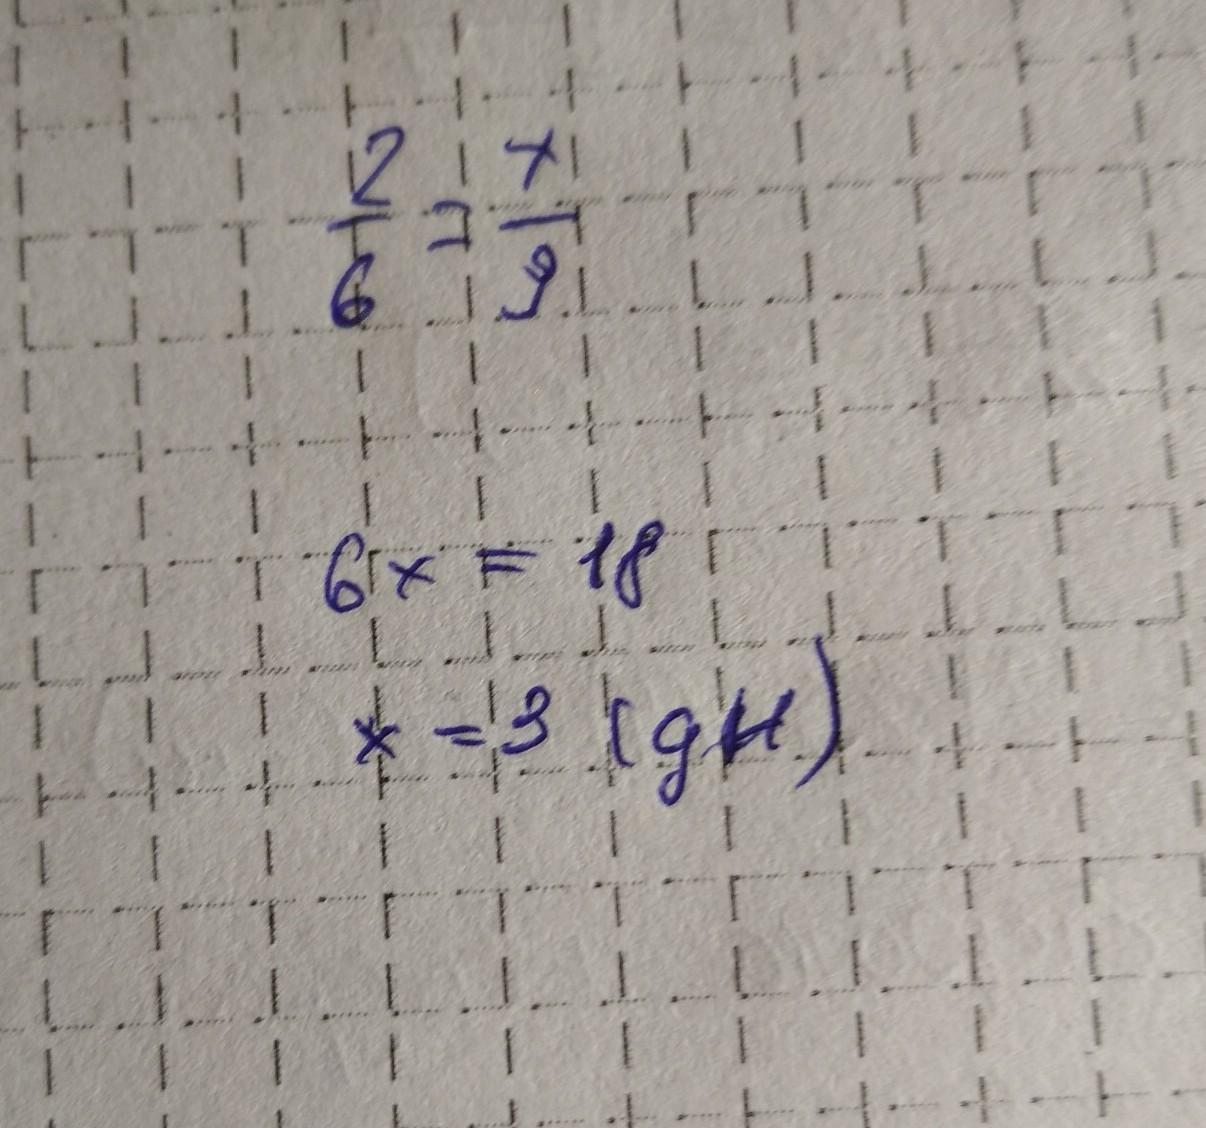 2/6 = x/9
6x = 18
x = 3 (дн)